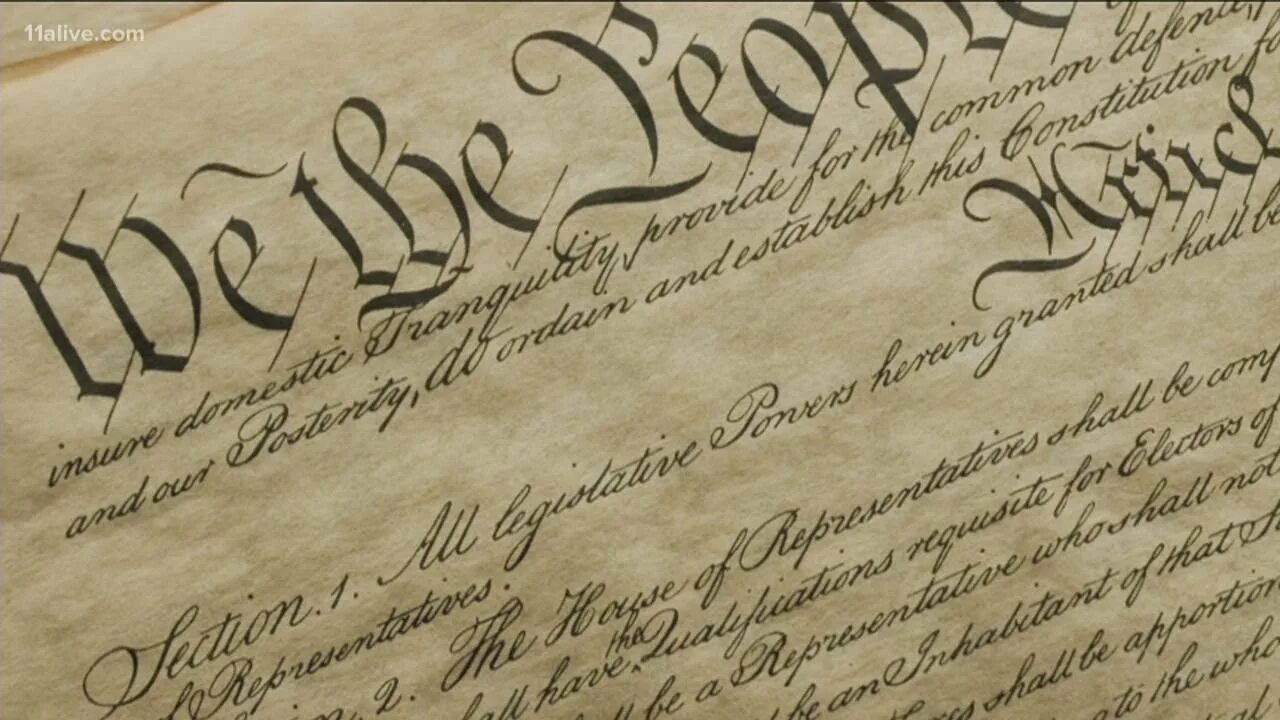 11alive.com
We the People
insure domestic Tranquility, provide for the common defence,
and our Posterity, do ordain and establish this Constitution fo
Articl
Section. 1. All legislative Powers herein granted shall be
of Representatives.
n. 2. The House of Representatives shall be comp
all have the Qualifications requisite for Electors of
ll be a Representative who shall not
be an Inhabitant of that S
shall be apportion
to the who